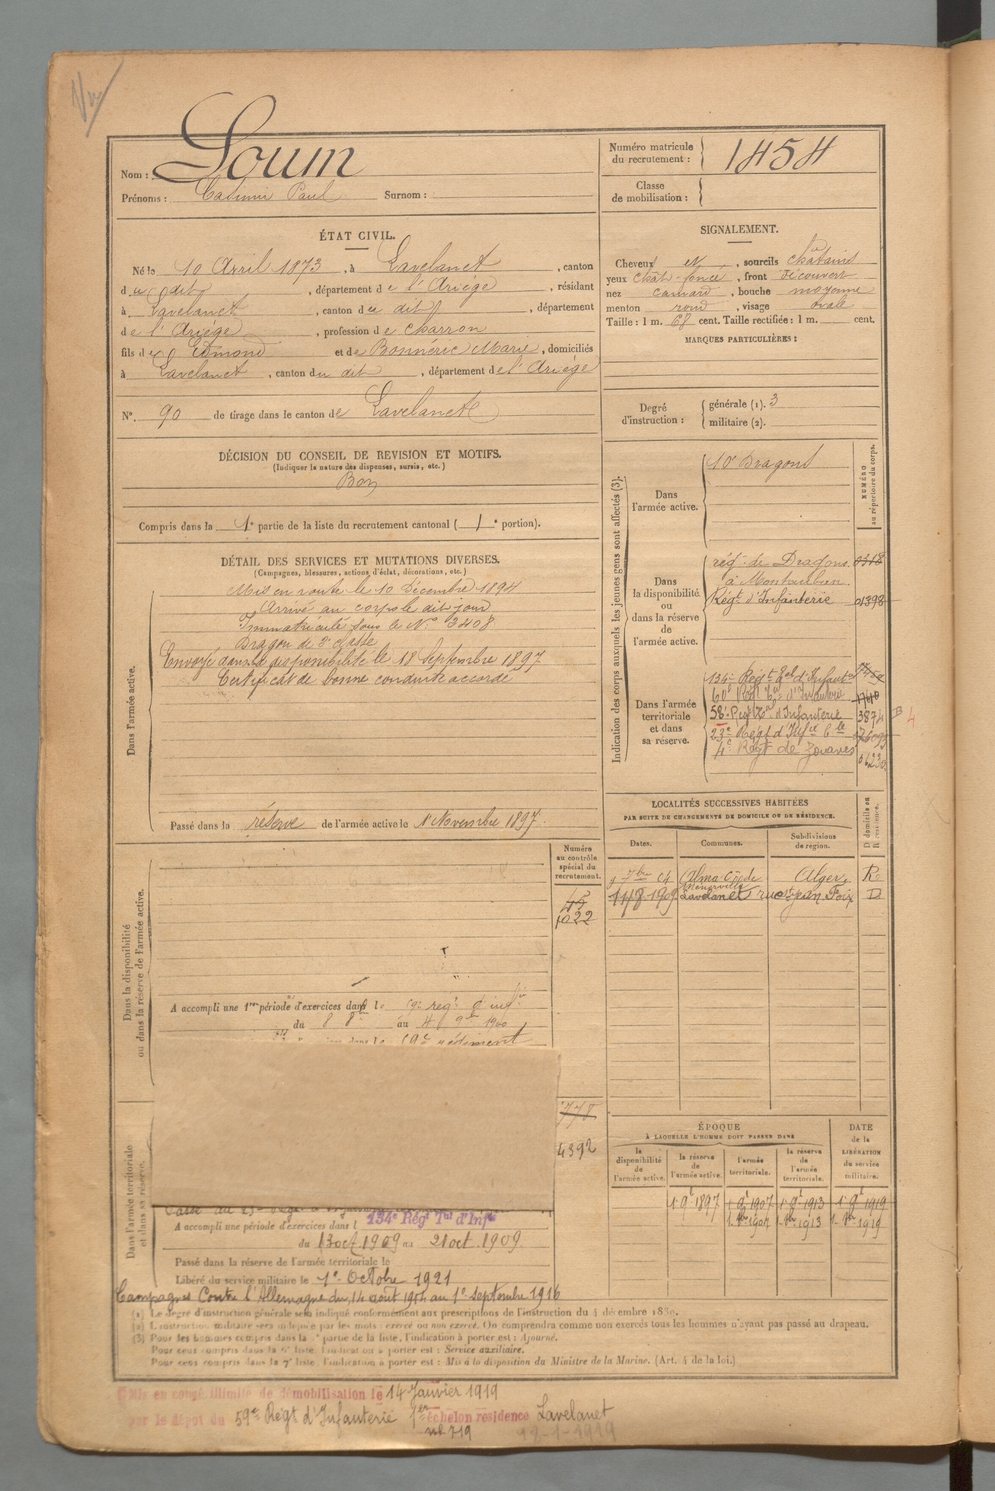 Vu
Nom : Loum
Prénoms : Casimir Paul Surnom :
Numéro matricule du recrutement : 1454
Classe de mobilisation :
ÉTAT CIVIL.
Né le 10 Avril 1873, à Lavelanet, canton
du dit, département de l'Ariège, résidant
à Lavelanet, canton du dit, département
de l'Ariège, profession de charron
fils de Edmond et de Bonnéric Marie, domiciliés
à Lavelanet, canton du dit, département de l'Ariège
N° 90 de tirage dans le canton de Lavelanet
SIGNALEMENT.
Cheveux et, sourcils châtains
yeux chât-foncé, front découvert
nez camard, bouche moyenne
menton rond, visage ovale
Taille : 1 m. 68 cent. Taille rectifiée : 1 m. cent.
MARQUES PARTICULIÈRES :
Degré d'instruction : générale (1). 3
militaire (2).
DÉCISION DU CONSEIL DE REVISION ET MOTIFS.
(Indiquer la nature des dispenses, sursis, etc.)
Bon
Compris dans la 1e partie de la liste du recrutement cantonal ( 1 e portion).
DÉTAIL DES SERVICES ET MUTATIONS DIVERSES.
(Campagnes, blessures, actions d'éclat, décorations, etc.)
Dans l'armée active.
Mis en route le 10 Décembre 1894
Arrivé au corps le dit jour
Immatriculé sous le N° 3408
Dragon de 2e classe
Envoyé dans la disponibilité le 18 Septembre 1897
Certificat de bonne conduite accordé
Passé dans la réserve de l'armée active le 1 Novembre 1897
Indication des corps auxquels les jeunes gens sont affectés (3).
NUMÉRO au répertoire du corps.
Dans l'armée active.
10e Dragons
Dans la disponibilité ou dans la réserve de l'armée active.
rég. de Dragons
à Montauban
Régt d'Infanterie 01398
Dans l'armée territoriale et dans sa réserve.
134e Régt Tal d'Infant
60e Régt Tal d'Infanterie
58e Régt Tal d'Infanterie 3874
23e Régt d'Infie Cle
4e Régt de Zouaves
LOCALITÉS SUCCESSIVES HABITÉES
PAR SUITE DE CHANGEMENTS DE DOMICILE OU DE RÉSIDENCE.
Dates. Communes. Subdivisions de région. D domicile ou R résidence.
Alma Alger R
1909 Lavelanet rue St Jean Foix D
Dans la disponibilité ou dans la réserve de l'armée active.
Numéro au contrôle spécial du recrutement.
1022
A accompli une 1re période d'exercices dans l
du 8 8bre au 4 9bre 1900
régiment
4392
Dans l'armée territoriale et dans sa réserve.
A accompli une période d'exercices dans l 134e Régt Tal d'Infie
du 13 oct 1909 au 21 oct 1909
Passé dans la réserve de l'armée territoriale le
Libéré du service militaire le 1er Octobre 1921
Campagnes Contre l'Allemagne du 14 août 1914 au 1er Septembre 1916
ÉPOQUE
À LAQUELLE L'HOMME DOIT PASSER DANS
DATE de la LIBÉRATION du service militaire.
la disponibilité de l'armée active. la réserve de l'armée active. l'armée territoriale. la réserve de l'armée territoriale.
1897 1907 1913 1919
1907 1913 1919
(1) Le degré d'instruction générale sera indiqué conformément aux prescriptions de l'instruction du 4 décembre 1889.
(2) L'instruction militaire sera indiquée par les mots : exercé ou non exercé. On comprendra comme non exercés tous les hommes n'ayant pas passé au drapeau.
(3) Pour les hommes compris dans la partie de la liste, l'indication à porter est : Ajourné.
Pour ceux compris dans la 6e liste l'indication à porter est : Service auxiliaire.
Pour ceux compris dans la 7e liste l'indication à porter est : Mis à la disposition du Ministre de la Marine. (Art. 4 de la loi.)
Mis en congé illimité de démobilisation le 14 Janvier 1919
par le dépôt du 59e Régt d'Infanterie 1er échelon résidence Lavelanet
n° 719 18-1-1919